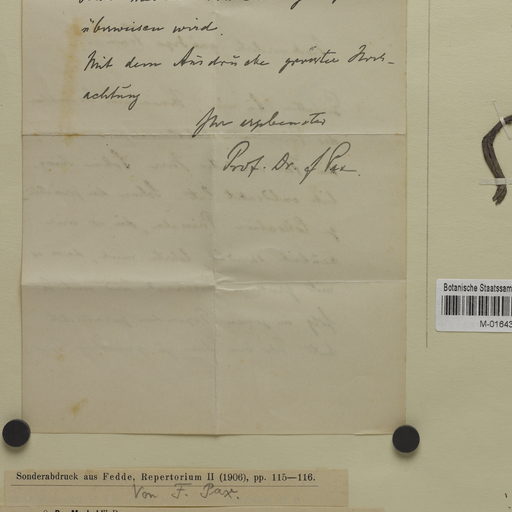 überweisen wird.
Mit dem Ausdrucke grösster Hoch-
achtung
Ihr ergebenster
Prof. Dr. F Pax.
Botanische Staatssam
M-01643
Sonderabdruck aus Fedde, Repertorium II (1906), pp. 115—116.
Von F. Pax.